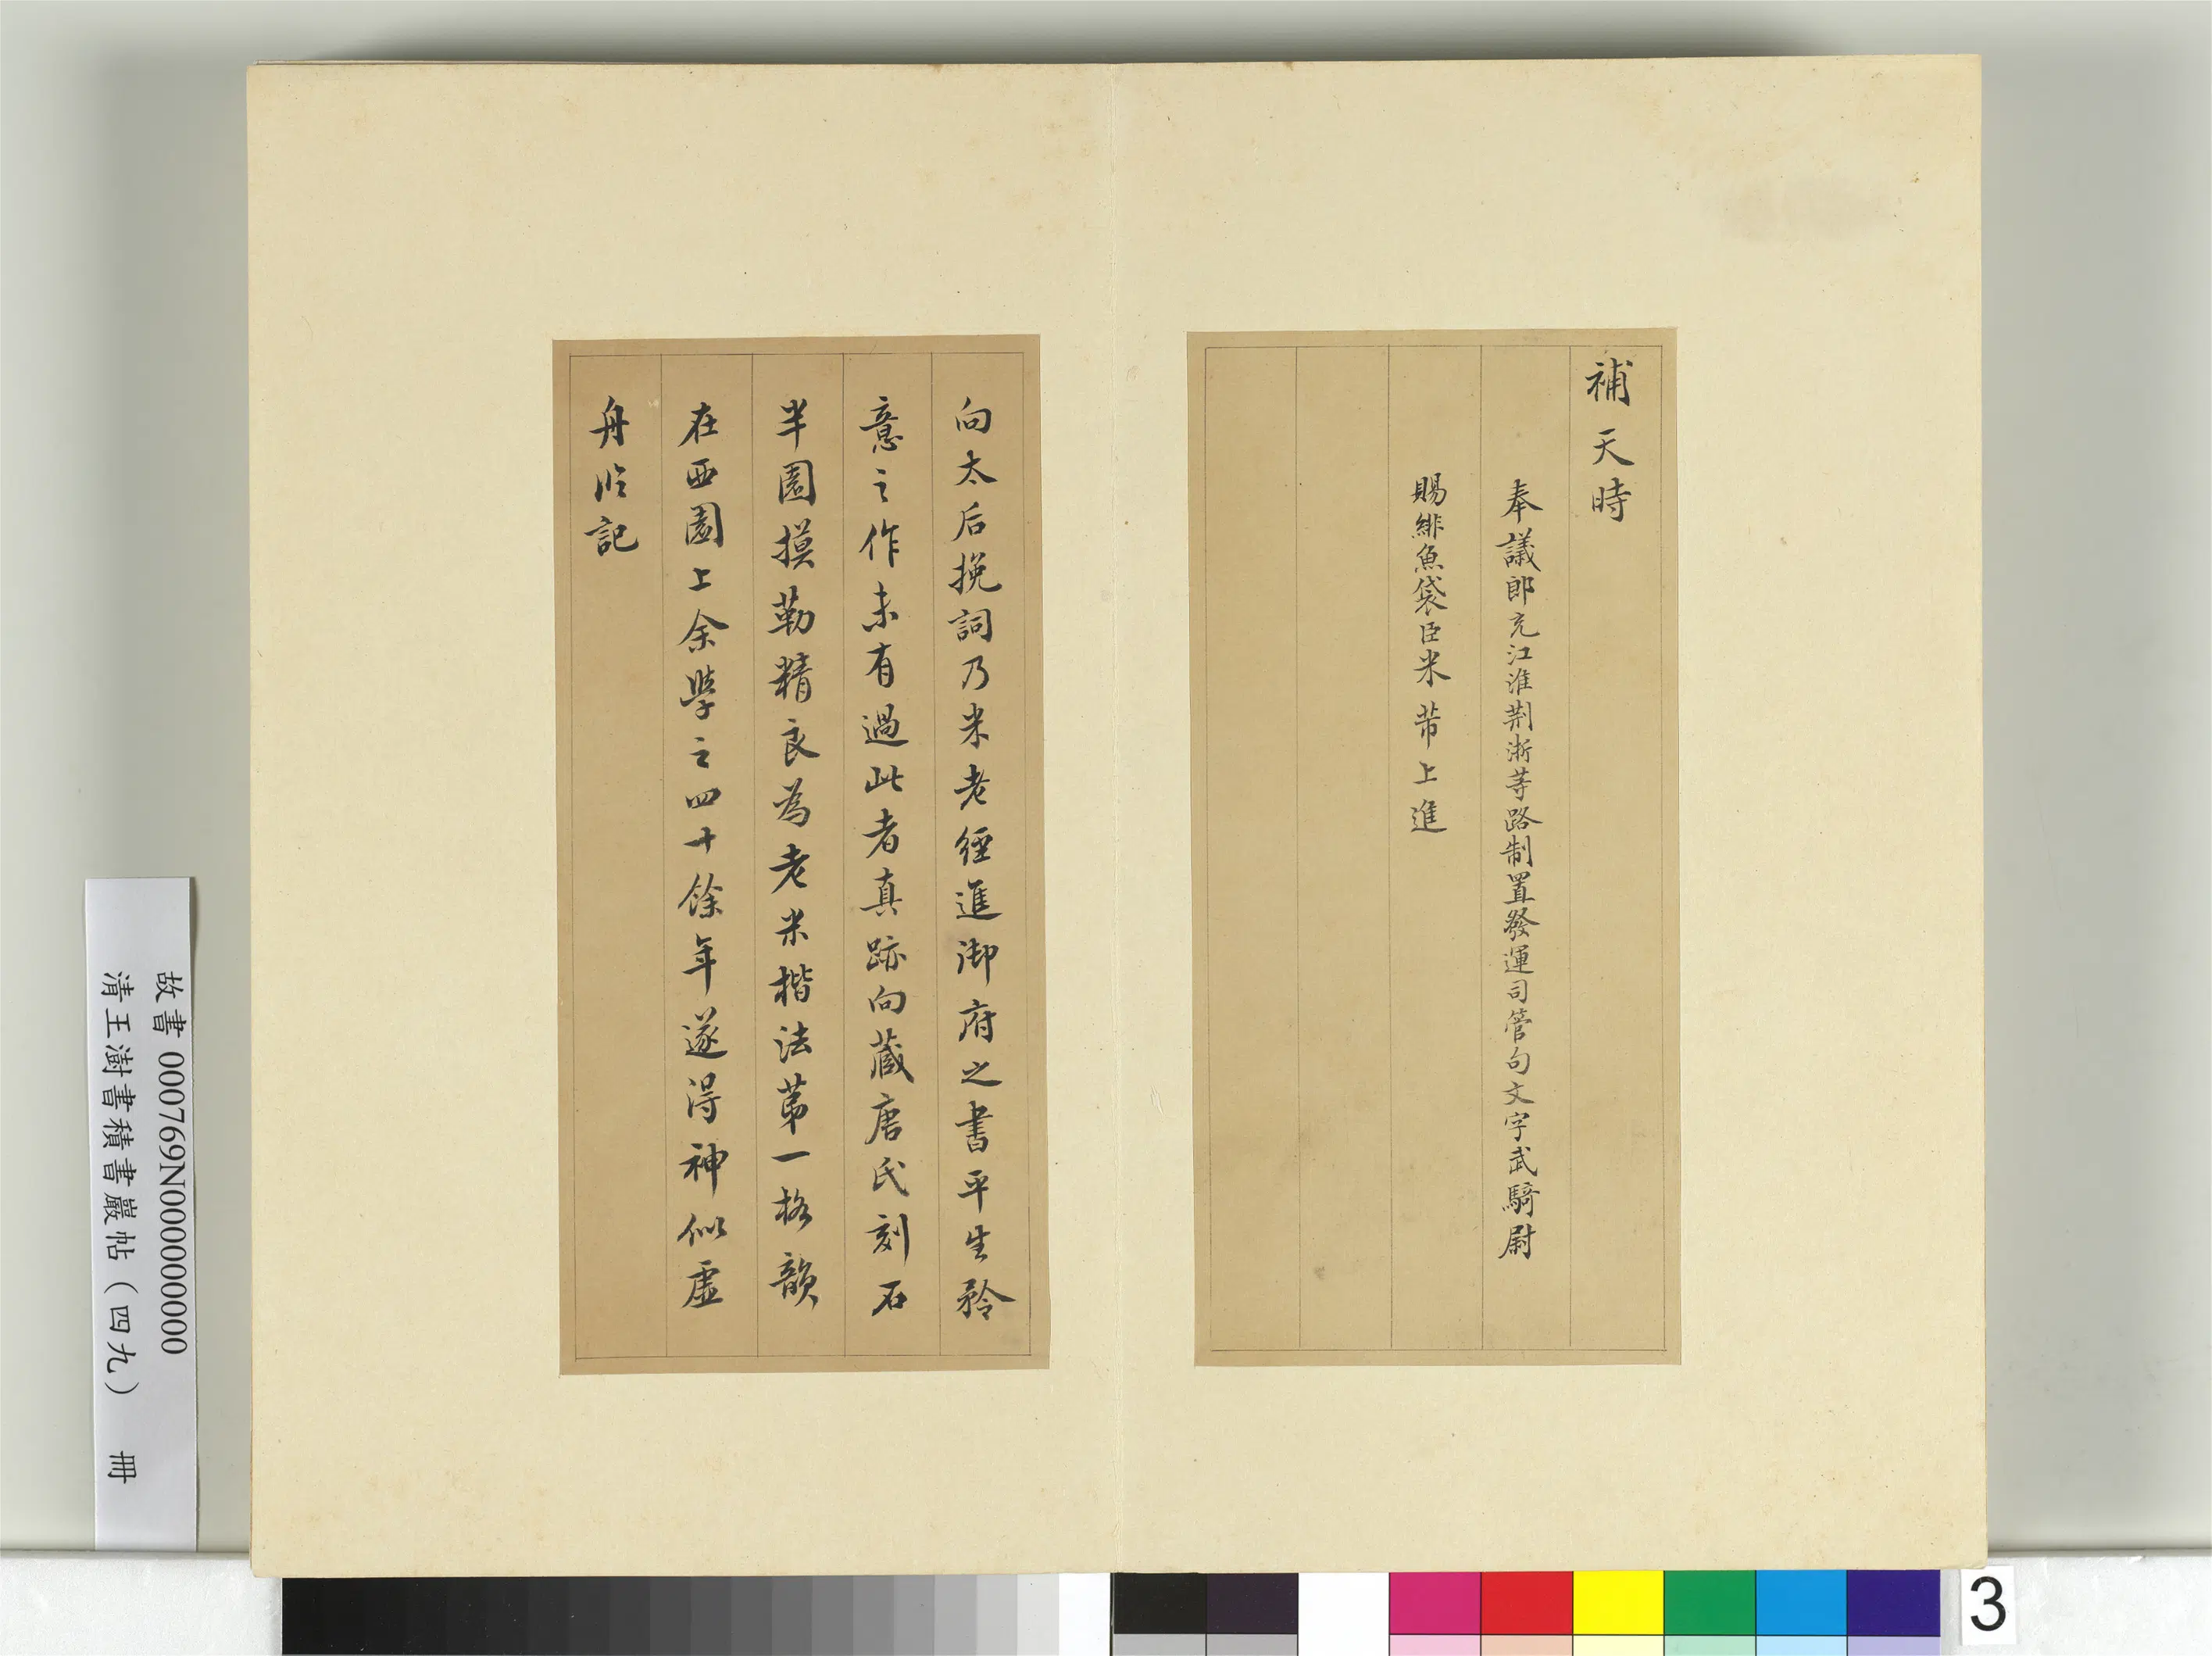 補天時
奉議郎充江淮荆淛等路制置發運司管句文字武騎尉
賜緋魚袋臣米芾上進
向太后挽詞乃米老經進御府之書平生矜
意之作未有過此者真跡向藏唐氏刻石
半園摸勒精良為老米楷法苐一格韻
在西園上余學之四十餘年遂得神似虛
舟临記
故書 000769N000000000
清王澍書積書巖帖（四九） 冊
3